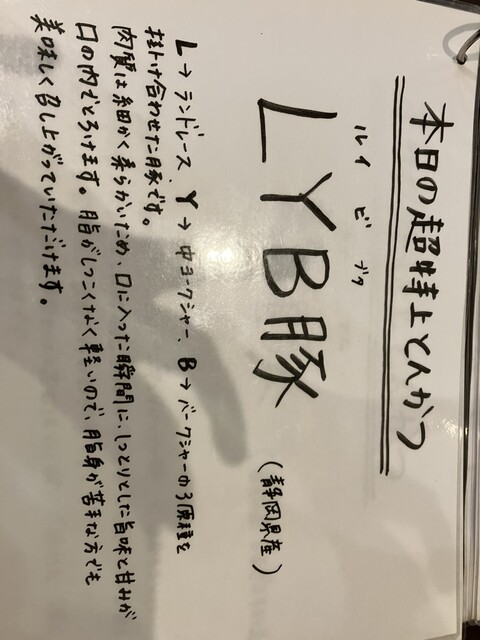 本日の超特上とんかつ
ルイビブタ
LYB豚
(静岡県産)
L→ランドレース Y→中ヨークシャー、B→バークシャーの3原種を
掛け合わせた豚です。
肉質は細かく柔らかいため、口に入った瞬間に、しっとりとした旨味と甘みが
口の内でとろけます。脂がしつこくなく軽いので、脂身が苦手な方でも
美味しく召し上がっていただけます。